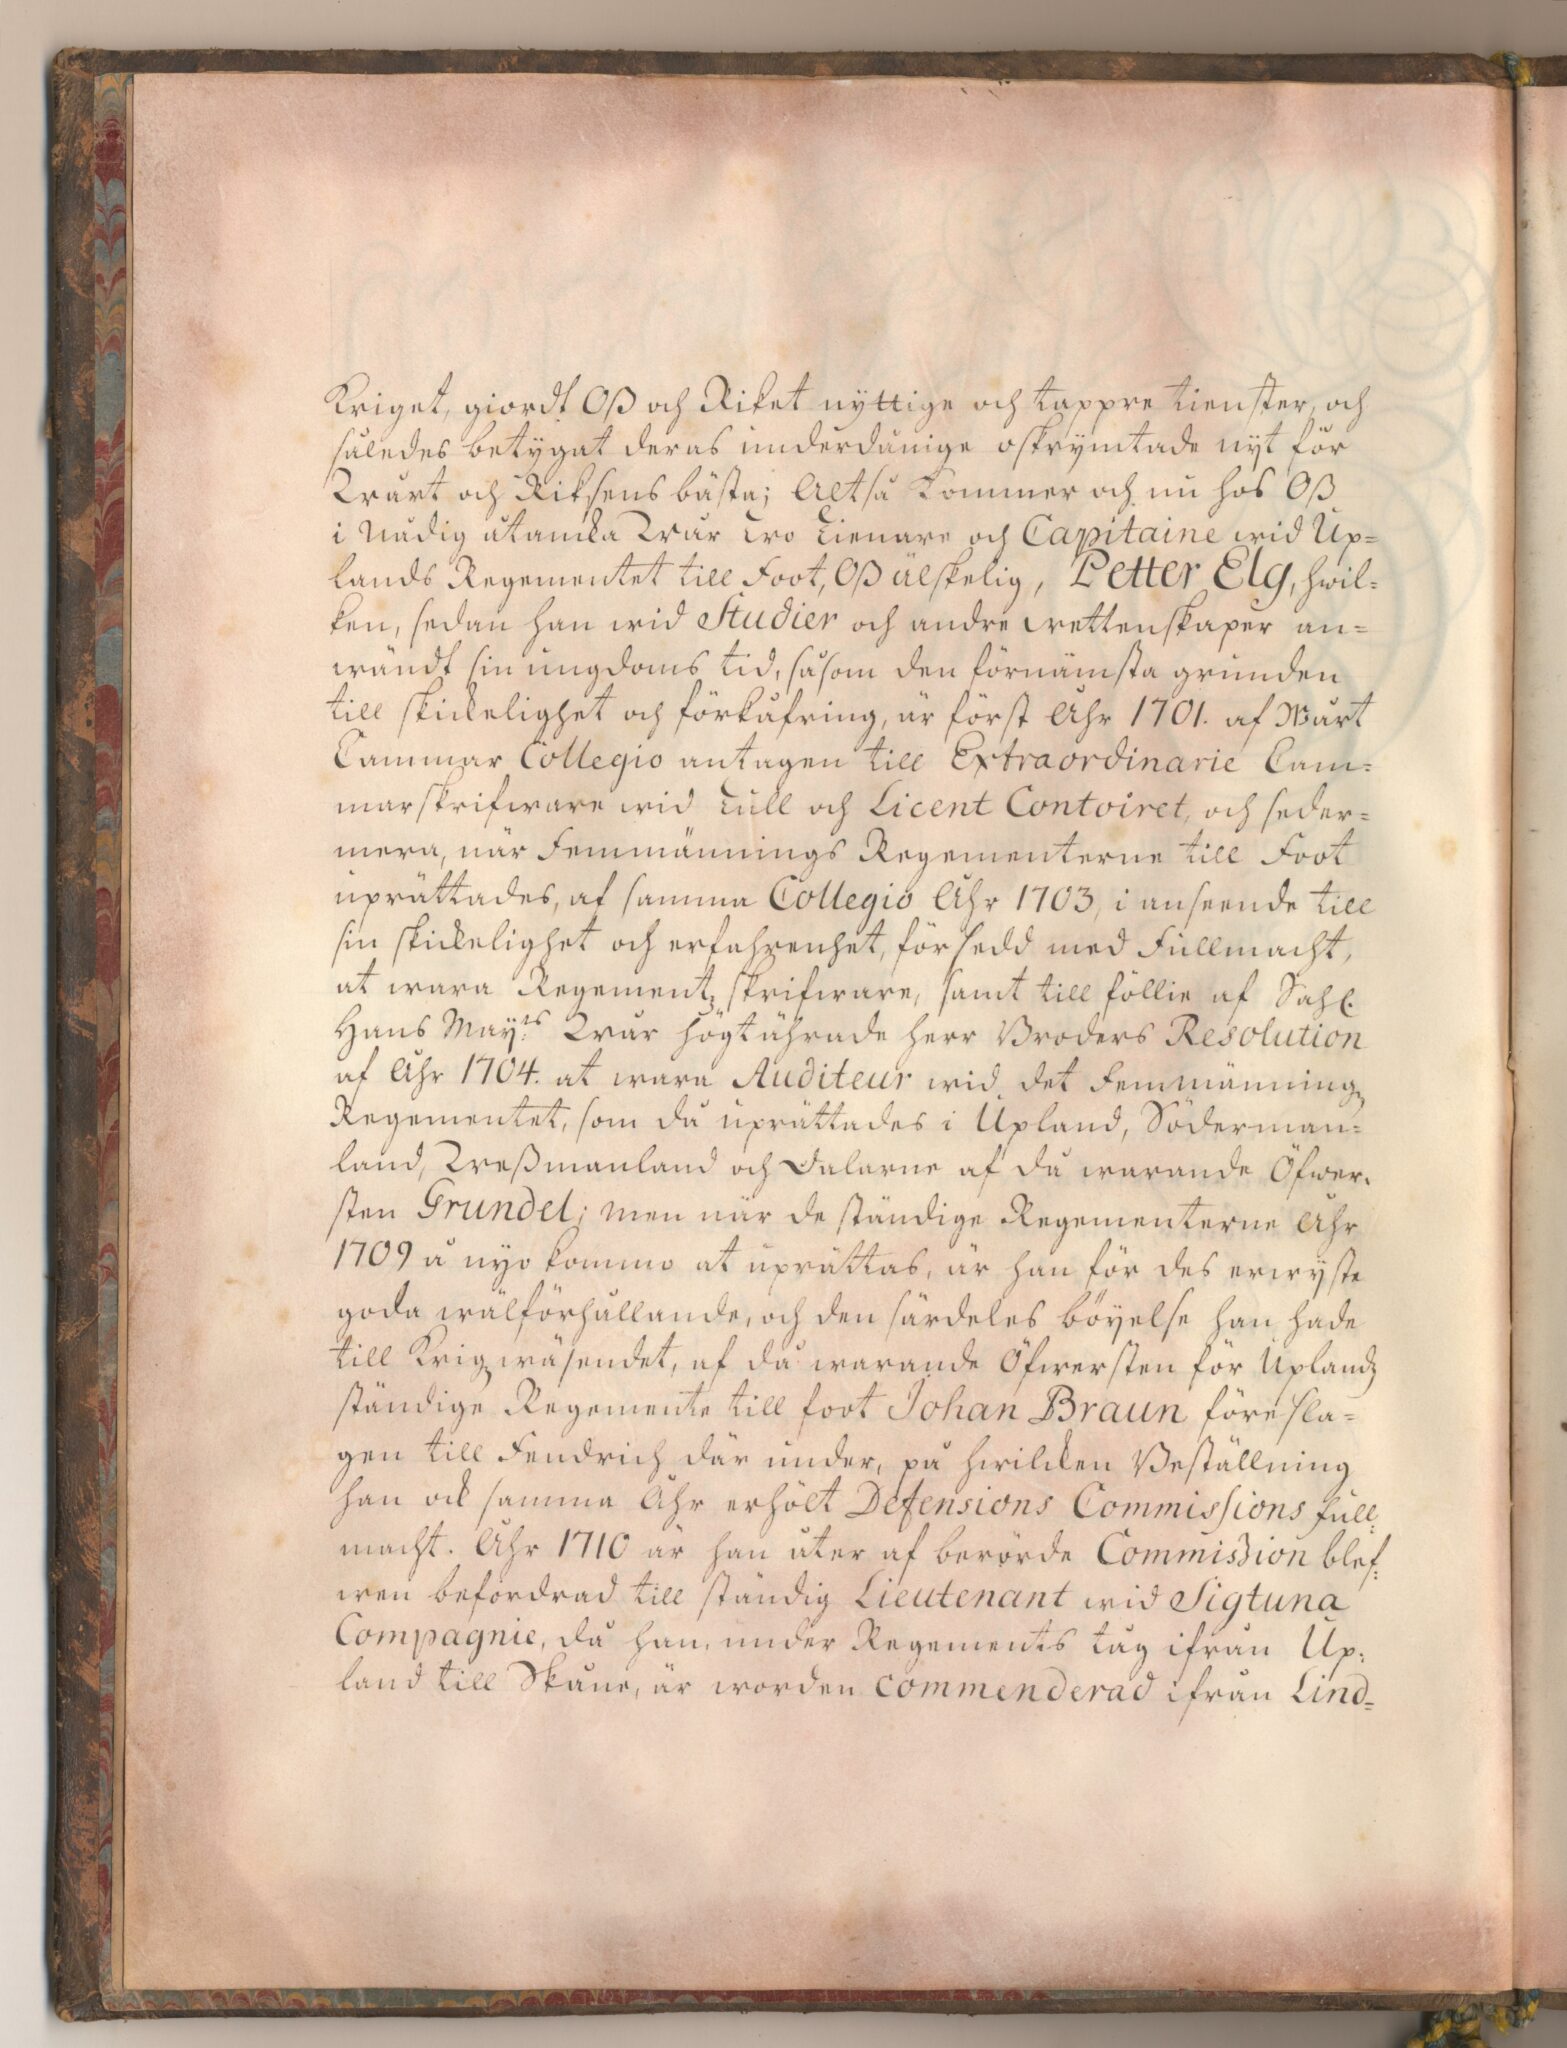 Kriget, giordt Oß och Riket nyttige och tappre tienster, och
således betygat deras underdånige oskrymtade nyt för
Wårt och Riksens bästa; Altså kommer och nu hos Oß
i Nådig åtancka Wår Tro Tienare och Capitaine wid Up=
lands Regementet till Foot, Oß älskelig, Petter Elg, hwil=
ken, sedan han wid Studier och andre wettenskaper an=
wändt sin ungdoms tid, såsom den förnämsta grunden
till skickelighet och förkåfring, är först Åhr 1701. af Wårt
Cammar Collegio antagen till Extraordinarie Cam=
marskrifware wid Tull och Licent Contoiret, och seder=
mera, när Femmännings Regementerne till Foot
uprättades, af samma Collegio Åhr 1703, i anseende till
sin skickelighet och erfahrenhet, försedd med Fullmacht,
at wara Regementz skrifware, samt till föllie af Sahl.
Hans May:ts Wår högtährade herr Broders Resolution
af Åhr 1704. at wara Auditeur wid det Femmänningz
Regementet, som då uprättades i Upland, Söderman=
land, Weßmanland och Dalarne af då warande Öfwer=
sten Grundel; men när de ständige Regementerne Åhr
1709 å nyo kommo at uprättas, är han för des erwyste
goda wälförhållande, och den särdeles böyelse han hade
till Krigzwäsendet, af då warande Öfwersten för Uplandz
ständige Regemente till foot Johan Braun föresla=
gen till Fendrich där under, på hwilcken Beställning
han ock samma Åhr erhölt Defensions Commissions full=
macht. Åhr 1710 är han åter af berörde Commission blef=
wen befordrad till ständig Lieutenant wid Sigtuna
Compagnie, då han, under Regements tåg ifrån Up=
land till Skåne, är worden commenderad ifrån Lind=